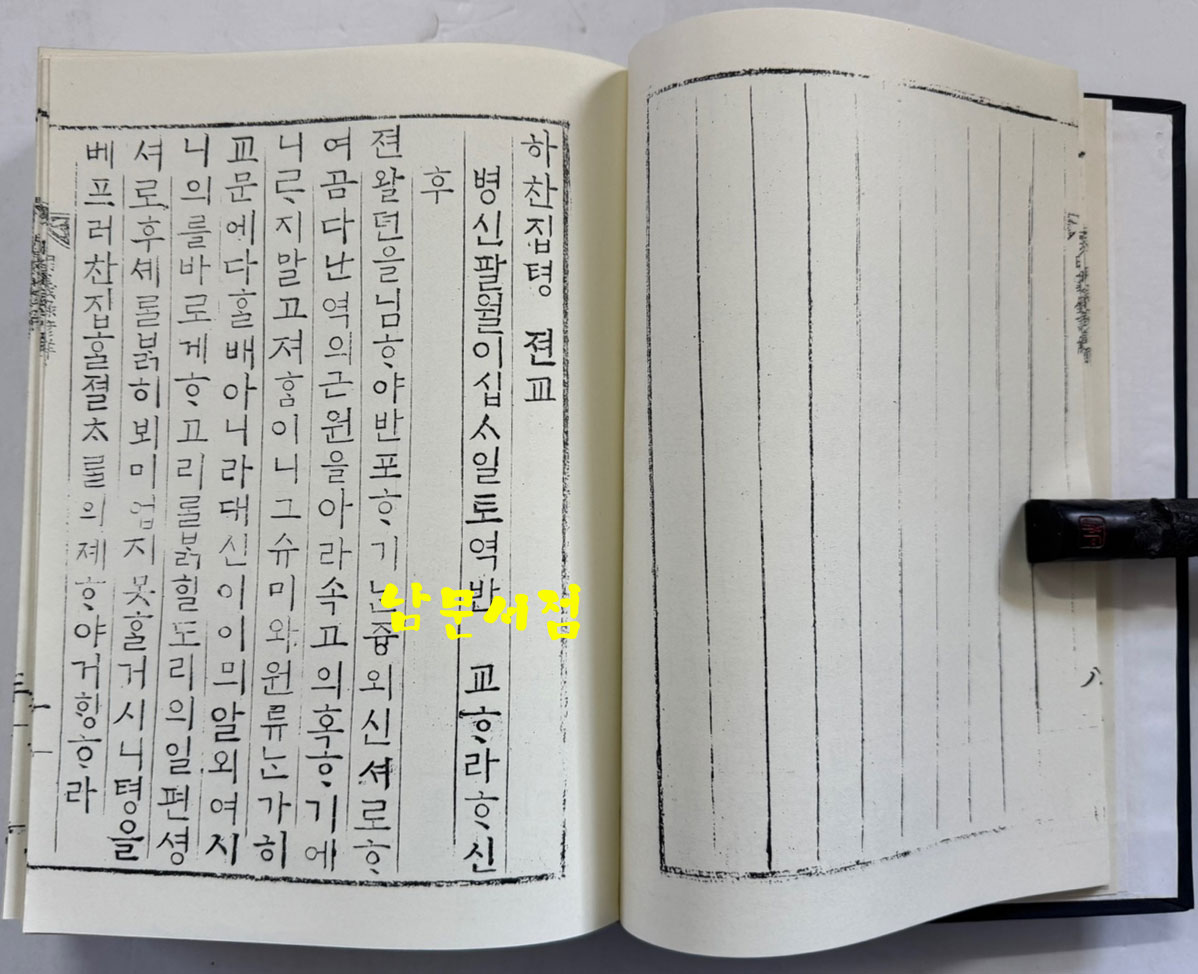 하찬집텽 젼교
병신팔월이십ᄉᆞ일토역반 교ᄒᆞ라ᄒᆞ신
후
젼왈뎐을님ᄒᆞ야반포ᄒᆞ기ᄂᆞᆫ즁외신셔로ᄒᆞ
여곰다난역의근원을아라속고의혹ᄒᆞ기에
니ᄅᆞ지말고져ᄒᆞᆷ이니그슈미와원류ᄂᆞᆫ가히
교문에다ᄒᆞᆯ배아니라대신이이믜알외여시
니의를바로게ᄒᆞ고리ᄅᆞᆯᄇᆞᆰ힐도리의일편셩
셔로후셰ᄅᆞᆯᄇᆞᆰ히뵈미업지못ᄒᆞᆯ거시니텽을
베프러찬집ᄒᆞᆯ졀ᄎᆞᄅᆞᆯ의졔ᄒᆞ야거ᄒᆡᆼᄒᆞ라
남문서점